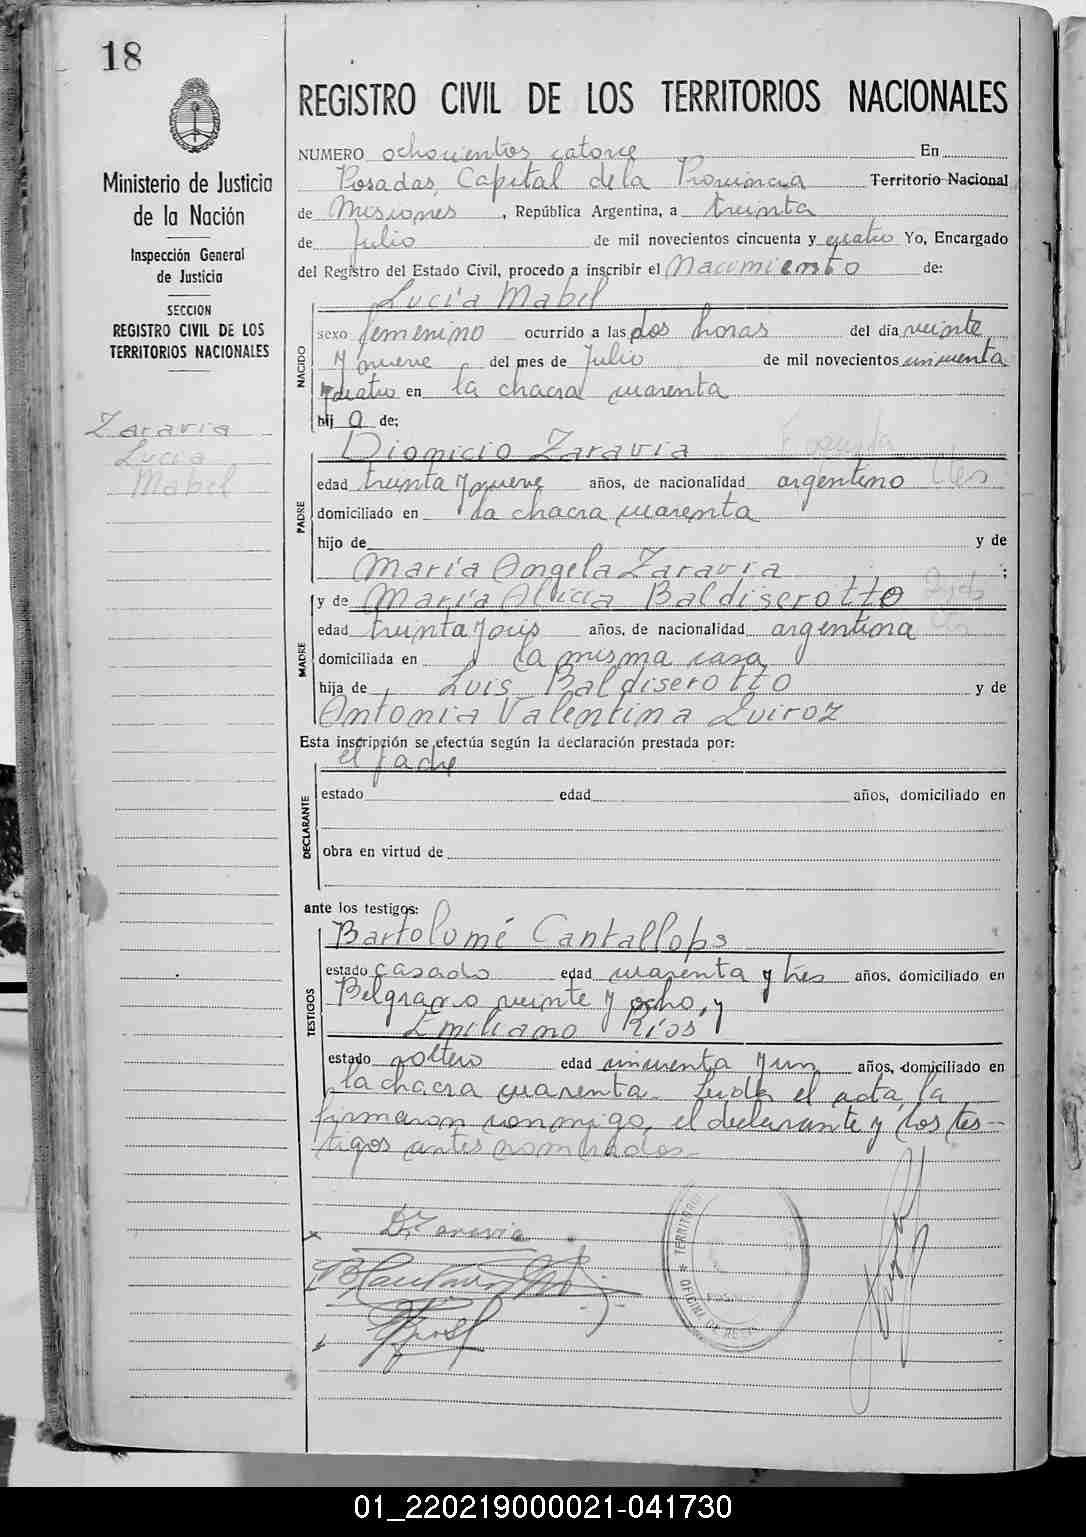 18
Ministerio de Justicia
de la Nación
Inspección General
de Justicia
SECCION
REGISTRO CIVIL DE LOS
TERRITORIOS NACIONALES
Zaravia
Lucia
Mabel
REGISTRO CIVIL DE LOS TERRITORIOS NACIONALES
NUMERO ochocientos catorce En
Posadas, Capital de la Provincia Territorio Nacional
de Misiones, República Argentina, a treinta
de Julio de mil novecientos cincuenta y cuatro Yo, Encargado
del Registro del Estado Civil, procedo a inscribir el Nacimiento de:
Lucía Mabel
NACIDO
sexo femenino ocurrido a las dos horas del día veinte
y nueve del mes de Julio de mil novecientos cincuenta
y cuatro en la chacra cuarenta
hij a de:
Dionicio Zaravia
PADRE
edad treinta y nueve años, de nacionalidad argentino
domiciliado en la chacra cuarenta
hijo de y de
María Angela Zaravia ;
y de María Alicia Baldiserotto
MADRE
edad treinta y seis años, de nacionalidad argentina
domiciliada en la misma casa
hija de Luis Baldiserotto y de
Antonia Valentina Quiroz
Esta inscripción se efectúa según la declaración prestada por:
el padre
DECLARANTE
estado edad años, domiciliado en
obra en virtud de
ante los testigos:
Bartolomé Cantallops
TESTIGOS
estado casado edad cuarenta y tres años, domiciliado en
Belgrano veinte y ocho, y
Emiliano Ríos
estado soltero edad cincuenta y un años, domiciliado en
la chacra cuarenta. Leida el acta, la
firmaron conmigo, el declarante y los tes-
tigos antes nombrados.-
D. Zaravia
TERRITORI
OFICINA DE
01_220219000021-041730